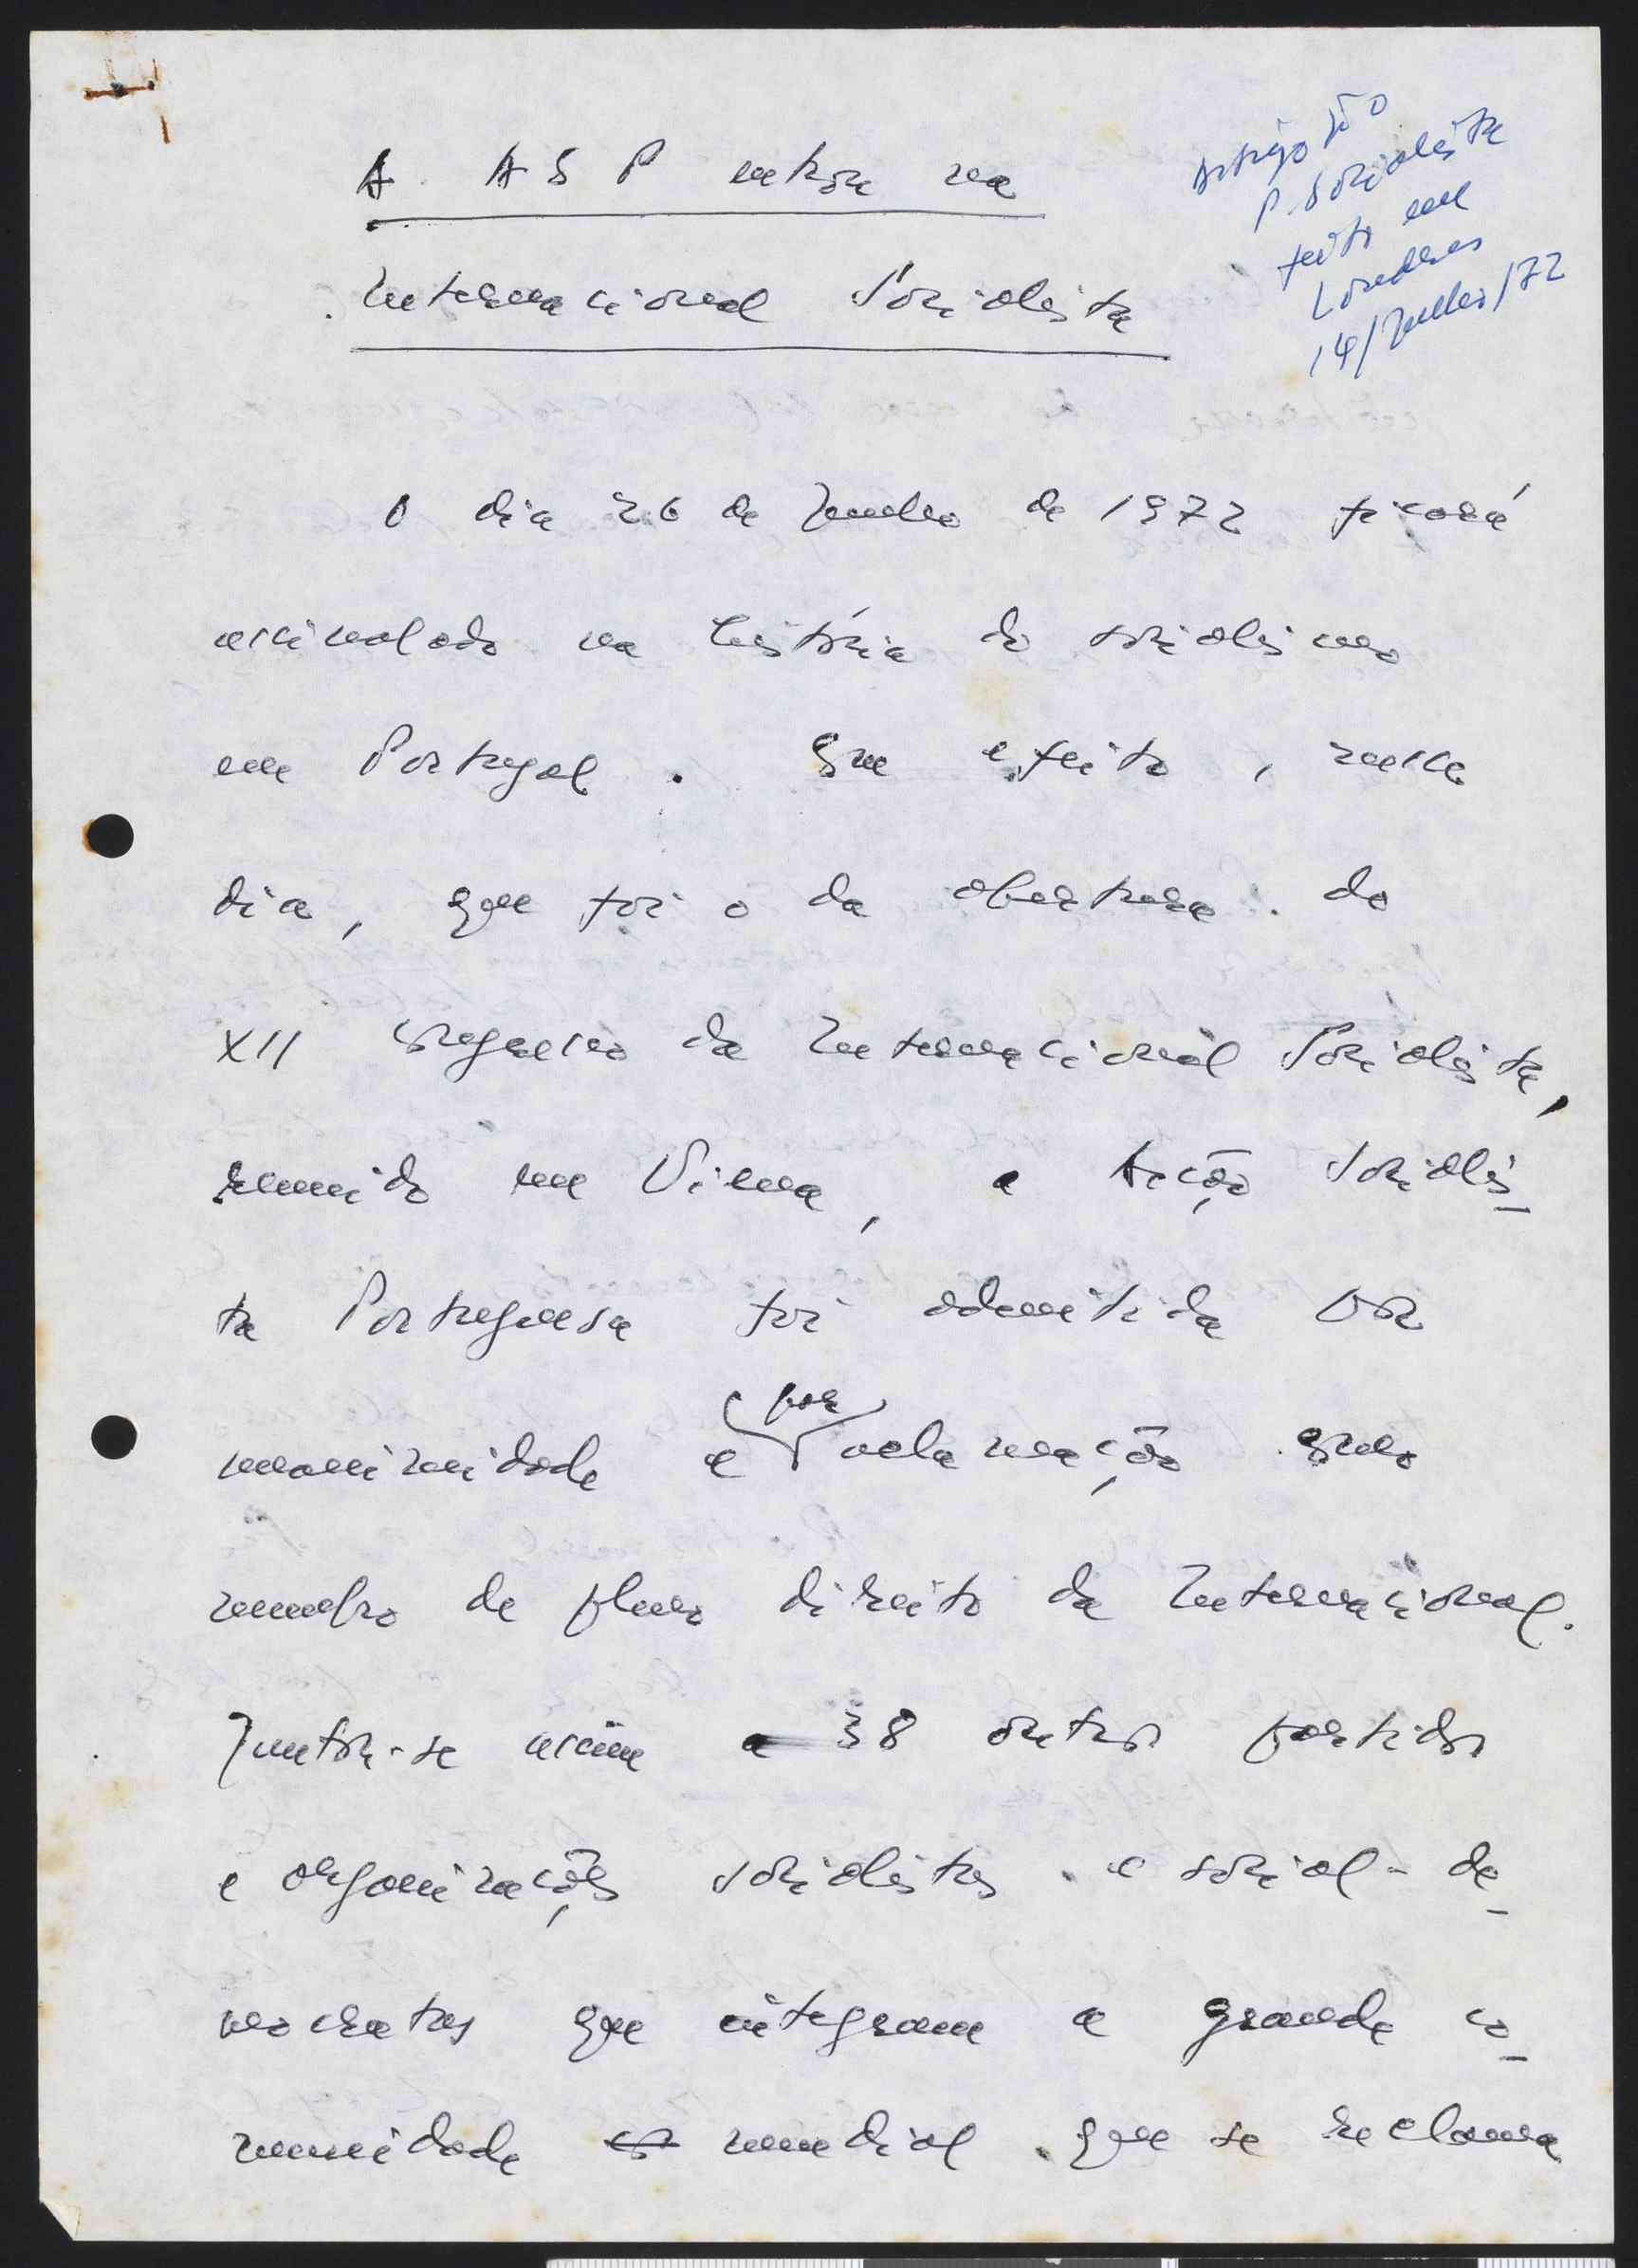 A ASP entra na
Internacional Socialista
Artigo p.ª o
P. Socialista
feito em
Londres
14/Julho/72
O dia 26 de Junho de 1972 ficará
assinalado na história do socialismo
em Portugal. Com efeito, nesse
dia, que foi o da abertura do
XII Congresso da Internacional Socialista,
reunido em Viena, a Acção Socialis-
ta Portuguesa foi admitida por
unanimidade e por aclamação como
membro de pleno direito da Internacional.
Juntou-se assim a 38 outros partidos
e organizações socialistas e social-de-
mocratas que integram a grande co-
munidade mundial que se reclama